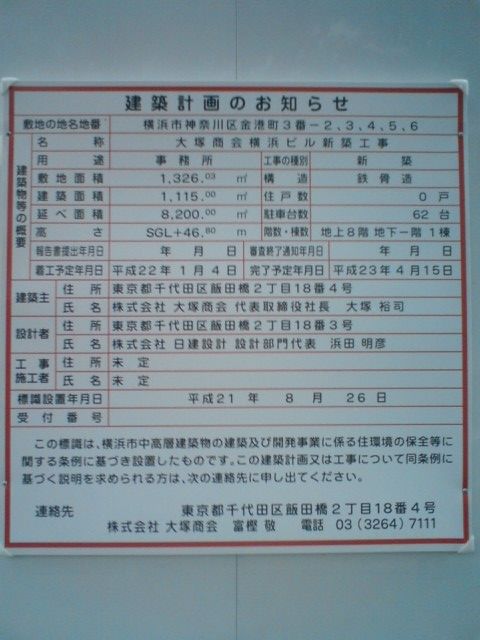 建築計画のお知らせ
敷地の地名地番 横浜市神奈川区金港町3番-2、3、4、5、6
建築物等の概要
名称 大塚商会横浜ビル新築工事
用途 事務所 工事の種別 新築
敷地面積 1,326.03 ㎡ 構造 鉄骨造
建築面積 1,115.00 ㎡ 住戸数 0戸
延べ面積 8,200.00 ㎡ 駐車台数 62台
高さ SGL+46.80 m 階数・棟数 地上8階 地下一階 1棟
報告書提出年月日 年 月 日 審査終了通知年月日 年 月 日
着工予定年月日 平成22年1月4日 完了予定年月日 平成23年4月15日
建築主 住所 東京都千代田区飯田橋2丁目18番4号
氏名 株式会社 大塚商会 代表取締役社長 大塚 裕司
設計者 住所 東京都千代田区飯田橋2丁目18番3号
氏名 株式会社 日建設計 設計部門代表 浜田 明彦
工事施工者 住所 未定
氏名 未定
標識設置年月日 平成21年 8月 26日
受付番号
この標識は、横浜市中高層建築物の建築及び開発事業に係る住環境の保全等に
関する条例に基づき設置したものです。この建築計画又は工事について同条例に
基づく説明を求められる方は、次の連絡先に申し出てください。
連絡先 東京都千代田区飯田橋2丁目18番4号
株式会社 大塚商会 富樫 敬 電話 03(3264)7111